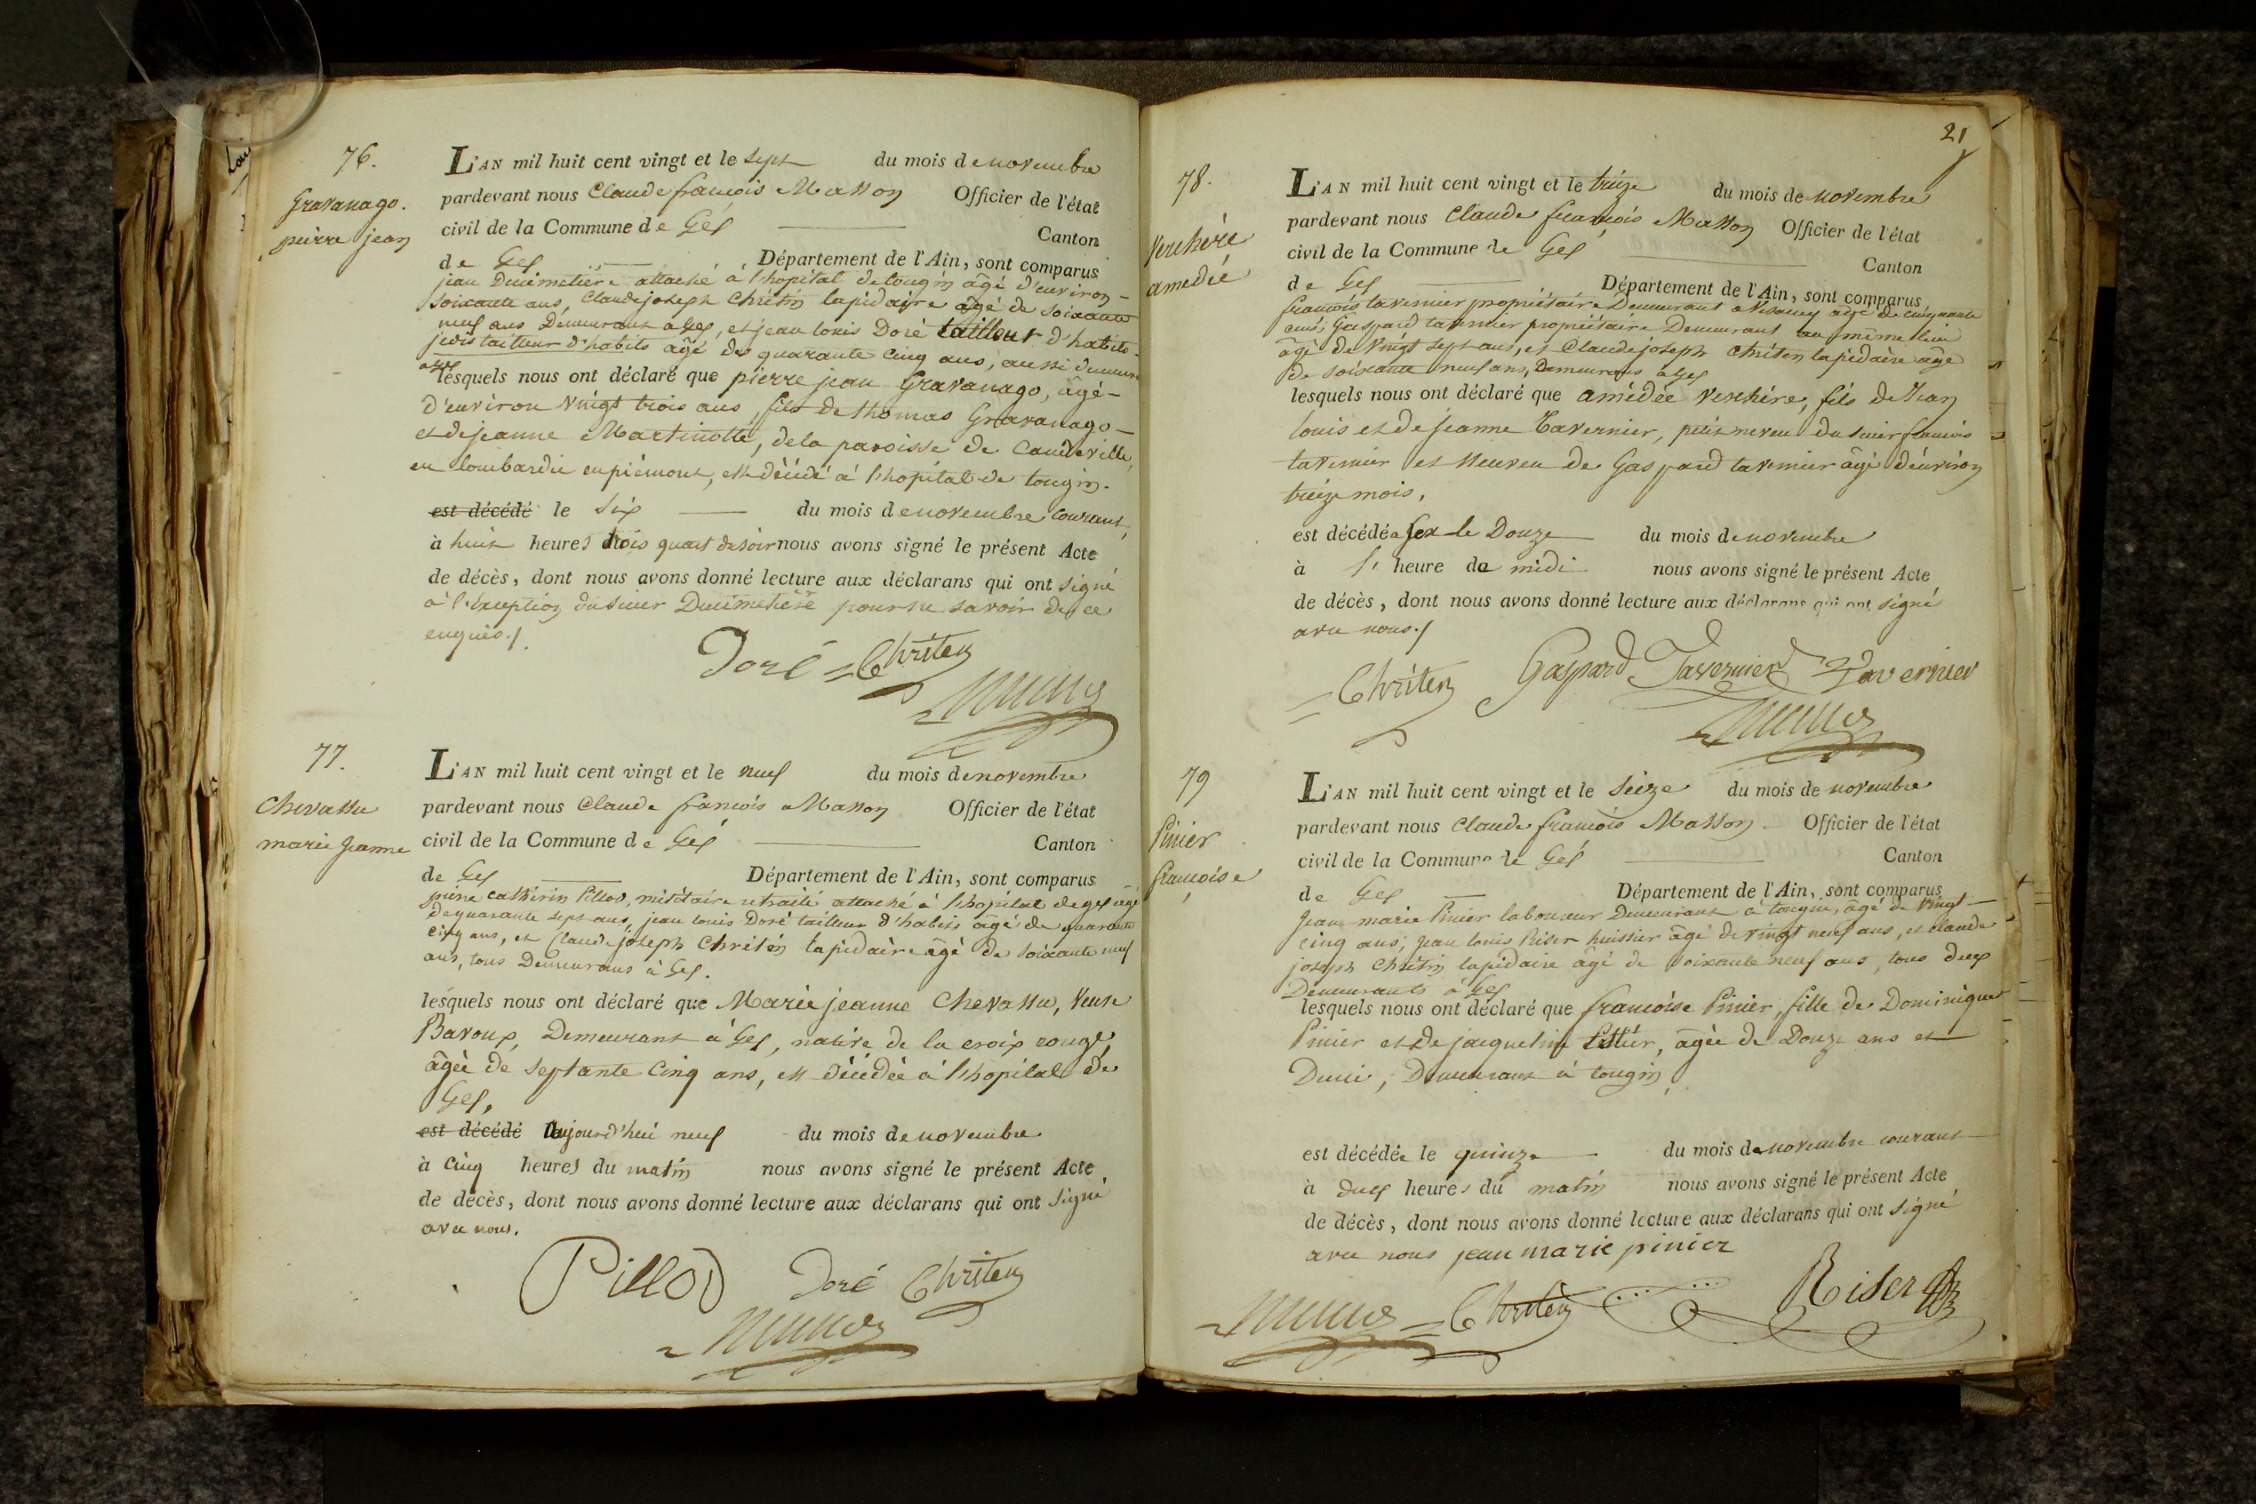 76.
Gravanago.
pierre jean
L'AN mil huit cent vingt et le sept du mois de novembre
pardevant nous Claude françois Masson Officier de l'état
civil de la Commune de Gex Canton
de Gex Département de l'Ain, sont comparus
jean Ducimetière attaché à l'hopital de tougin âgé d'environ
soixante ans, Claude joseph Chrétin lapidaire âgé de soixante
neuf ans Demeurant à Gex, et jean louis Doré tailleur d'habits
tailleur d'habits âgé de quarante cinq ans, aussi demeurant
lesquels nous ont déclaré que pierre jean Gravanago, âgé
d'environ vingt trois ans, fils de thomas Gravanago
et de jeanne Martinotti, de la paroisse de Candeville,
en lombardie en piémont, est décédé à l'hopital de tougin.
est décédé le six du mois de novembre courant,
à huit heures trois quart du soir nous avons signé le présent Acte
de décès, dont nous avons donné lecture aux déclarans qui ont signé
à l'exception du sieur Ducimetière pour ne savoir de ce
enquis./.
Doré Chriten
77.
Chevassu
marie jeanne
L'AN mil huit cent vingt et le neuf du mois de novembre
pardevant nous Claude françois Masson Officier de l'état
civil de la Commune de Gex Canton
de Gex Département de l'Ain, sont comparus
pierre cathérin Pillod, militaire retraité attaché à l'hopital de gex âgé
de quarante sept ans, jean louis Doré tailleur d'habits âgé de quarante
cinq ans, et Claude joseph Chritin lapidaire âgé de soixante neuf
ans, tous Demeurans à Gex.
lesquels nous ont déclaré que Marie jeanne Chevassu, veuve
Baroux, Demeurant à Gex, native de la croix rouge,
âgée de septante cinq ans, est décédée à l'hopital de
Gex,
est décédé aujourd'hui neuf du mois de novembre
à cinq heures du matin nous avons signé le présent Acte
de décès, dont nous avons donné lecture aux déclarans qui ont signé
avec nous.
Pillod Doré Chriten
21
78.
Verchère
amedée
L'AN mil huit cent vingt et le treize du mois de novembre
pardevant nous Claude françois Masson Officier de l'état
civil de la Commune de Gex Canton
de Gex Département de l'Ain, sont comparus
françois tavernier propriétaire Demeurant âgé de cinquante
ans; Gaspard tavernier propriétaire Demeurant au même lieu
âgé de vingt sept ans, et Claude joseph Chriten lapidaire âgé
de soixante neuf ans, Demeurans à Gex
lesquels nous ont déclaré que amédée verchère, fils de Jean
louis et de jeanne Tavernier, petit neveu du sieur françois
tavernier et Neuveu de Gaspard tavernier âgé d'environ
treize mois,
est décédé a Gex le Douze du mois de novembre
à l' heure de midi nous avons signé le présent Acte
de décès, dont nous avons donné lecture aux déclarans qui ont signé
avec nous./
Chriten Gaspard Tavernier Tavernier
79
Pinier
françoise
L'AN mil huit cent vingt et le seize du mois de novembre
pardevant nous Claude françois Masson Officier de l'état
civil de la Commune de Gex Canton
de Gex Département de l'Ain, sont comparus
jean marie Pinier laboureur Demeurant à tougin, âgé de vingt
cinq ans; jean louis Riser huissier âgé de vingt neuf ans, et claude
joseph Chritin lapidaire âgé de soixante neuf ans, tous deux
Demeurants à Gex
lesquels nous ont déclaré que françoise Pinier, fille de Dominique
Pinier et de jacqueline, âgée de Douze ans et
Demi, Demeurant à tougin,
est décédée le quinze du mois de novembre courant
à deux heures du matin nous avons signé le présent Acte
de décès, dont nous avons donné lecture aux déclarans qui ont signé
avec nous jean marie pinier
Chriten Riser